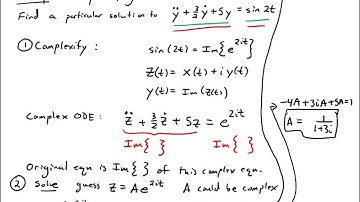 Find a particular solution to ÿ + 3/2 ẏ + 5y = sin 2t
① Complexify :
sin(2t) = Im{e^{2it}}
z(t) = x(t) + i y(t)
y(t) = Im(z(t))
Complex ODE: z̈ + 3/2 ż + 5z = e^{2it}
Im{ } Im{ }
Original eqn is Im{ } of this complex eqn.
② Solve guess z = Ae^{2it} A could be complex
-4A+3iA+5A=1
A = 1/(1+3i)